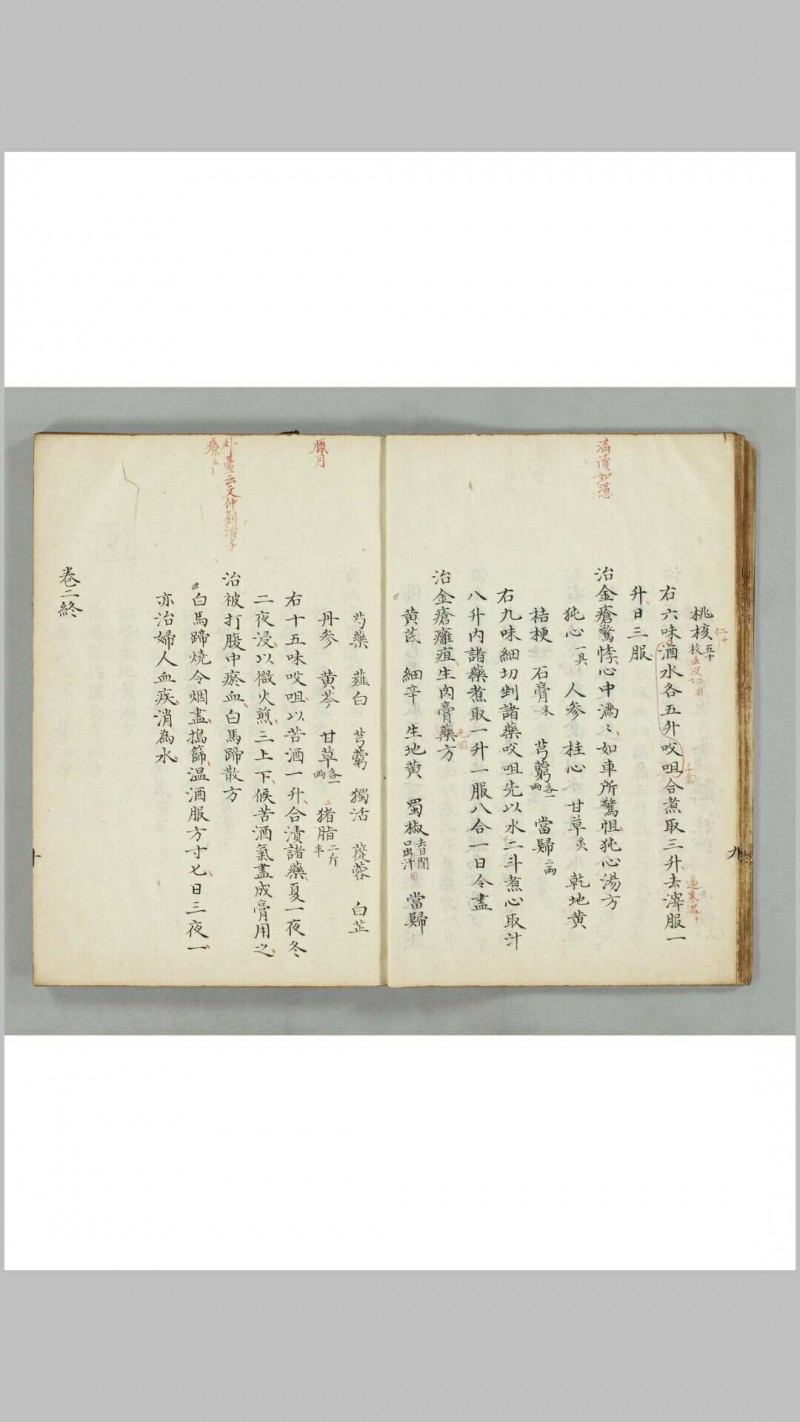 滿憒如㥽
桃核五十枚
仁
右六味酒水各五升㕮咀合煮取三升去滓服一
升日三服
治金瘡驚悸心中滿〻如車所驚怛㹠心湯方
㹠心一具　人參　桂心　甘草炙　乾地黃
桔梗　石膏末　芎藭各一兩　當歸二兩
右九味細切剉諸藥㕮咀先以水二斗煮心取汁
八升內諸藥煮取一升一服八合一日令盡
治金瘡癰疽生肉膏藥方
黃芪　細辛　生地黃　蜀椒去目閉口出汗　當歸
九
臘月
外臺云文仲劉涓子
療
芍藥　薤白　芎藭　獨活　蓯蓉　白芷
丹參　黃芩　甘草各一兩　猪脂二斤半
右十五味㕮咀以苦酒一升合漬諸藥夏一夜冬
二夜浸以微火煎三上下候苦酒氣盡成膏用之
治被打腹中瘀血白馬蹄散方
白馬蹄燒令烟盡搗篩温酒服方寸匕日三夜一
亦治婦人血疾消為水
卷二終
十